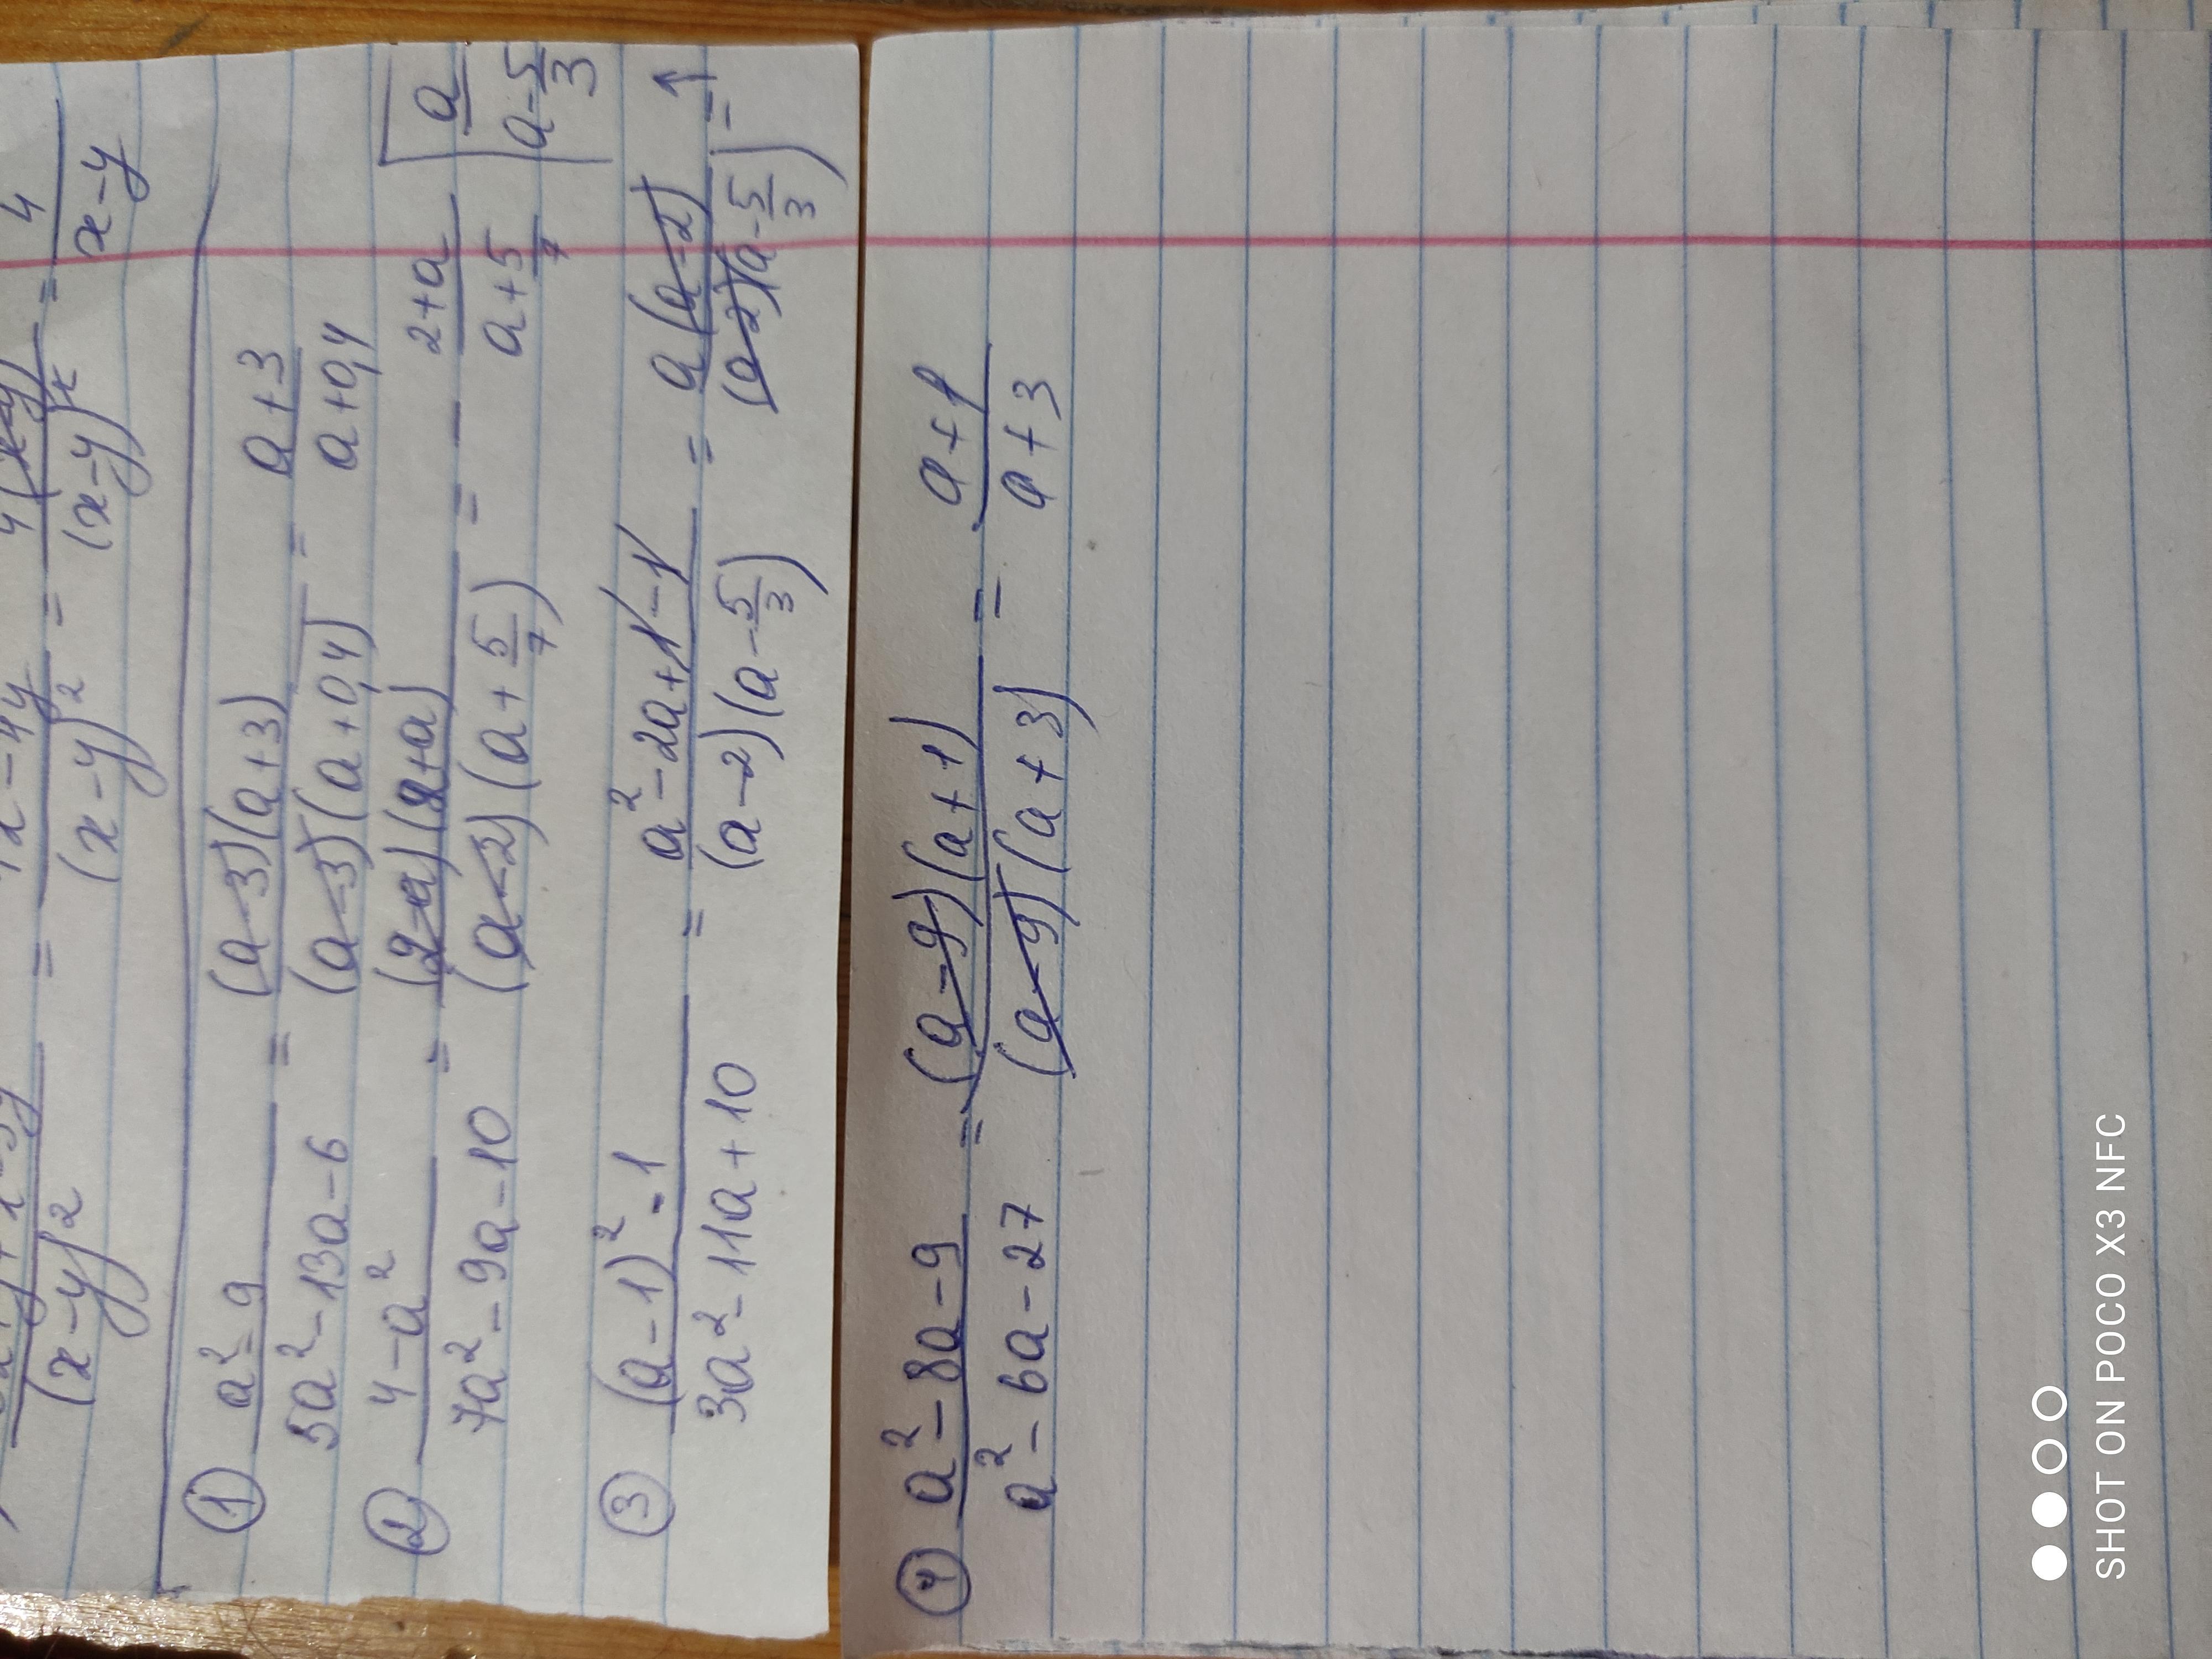 4
= (x-y)² = (x-y)² = x-y
① a²-9 / 5a²-13a-6 = (a-3)(a+3) / (a-3)(a+0,4) = a+3 / a+0,4
② 4-a² / 7a²-9a-10 = (2-a)(2+a) / (a-2)(a+5/7) = - 2+a / a+5/7
a / a-5/3
③ (a-1)²-1 / 3a²-11a+10 = a²-2a+1-1 / (a-2)(a-5/3) = a(a-2) / (a-2)(a-5/3) = ↑
④ a²-8a-9 / a²-6a-27 = (a-9)(a+1) / (a-9)(a+3) = a+1 / a+3
SHOT ON POCO X3 NFC